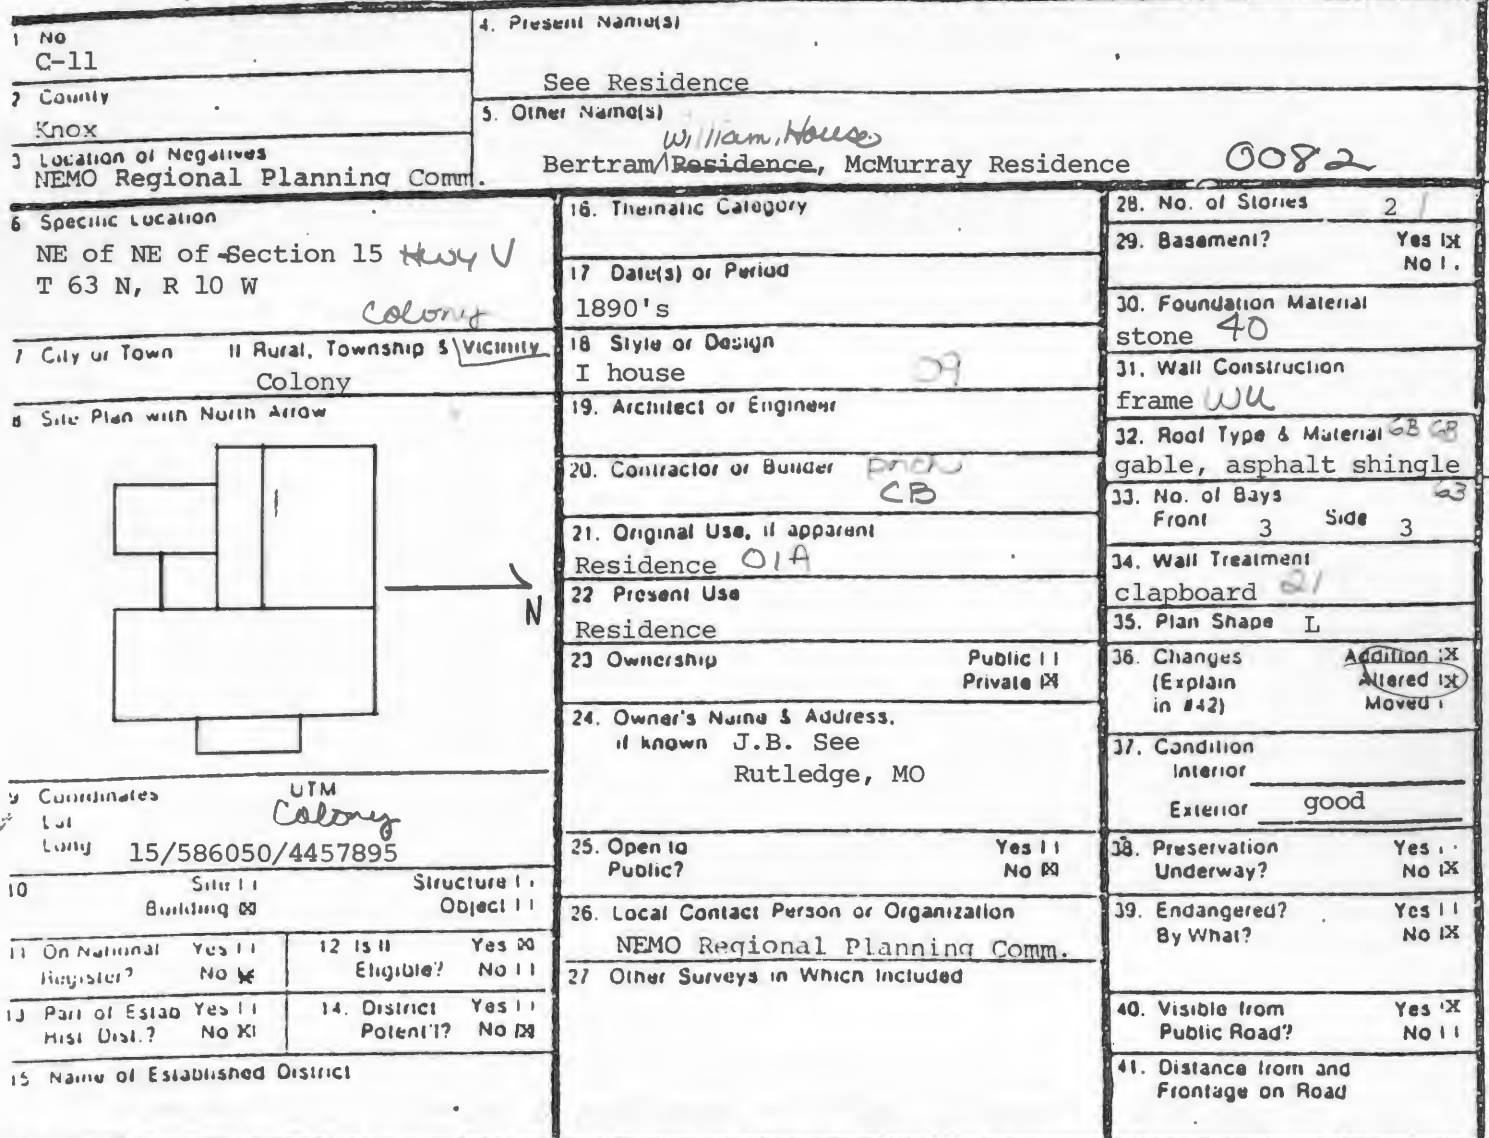 1 No
C-11
2 County
Knox
3 Location of Negatives
NEMO Regional Planning Comm.
4. Present Name(s)
See Residence
5. Other Name(s)
William, House
Bertram/Residence, McMurray Residence 0082
6 Specific Location
NE of NE of Section 15 Hwy V
T 63 N, R 10 W
Colony
7 City or Town If Rural, Township & Vicinity
Colony
8 Site Plan with North Arrow
N
9 Coordinates UTM
Colony
Lat
Long 15/586050/4457895
10 Site Structure
Building X Object
11 On National Register? Yes No X
12 Is It Eligible? Yes X No
13 Part of Estab Hist Dist.? Yes No X
14. District Potent'l? Yes No X
15 Name of Established District
16. Thematic Category
17 Date(s) or Period
1890's
18 Style or Design
I house 09
19. Architect or Engineer
20. Contractor or Builder porch
CB
21. Original Use, if apparent
Residence 01A
22 Present Use
Residence
23 Ownership Public
Private X
24. Owner's Name & Address,
if known J.B. See
Rutledge, MO
25. Open to Yes
Public? No X
26. Local Contact Person or Organization
NEMO Regional Planning Comm.
27 Other Surveys in Which Included
28. No. of Stories 2
29. Basement? Yes X
No
30. Foundation Material
stone 40
31. Wall Construction
frame WU
32. Roof Type & Material GB GB
gable, asphalt shingle
33. No. of Bays 63
Front 3 Side 3
34. Wall Treatment
clapboard 21
35. Plan Shape L
36. Changes Addition X
(Explain Altered X
in #42) Moved
37. Condition
Interior
Exterior good
38. Preservation Yes
Underway? No X
39. Endangered? Yes
By What? No X
40. Visible from Yes X
Public Road? No
41. Distance from and
Frontage on Road